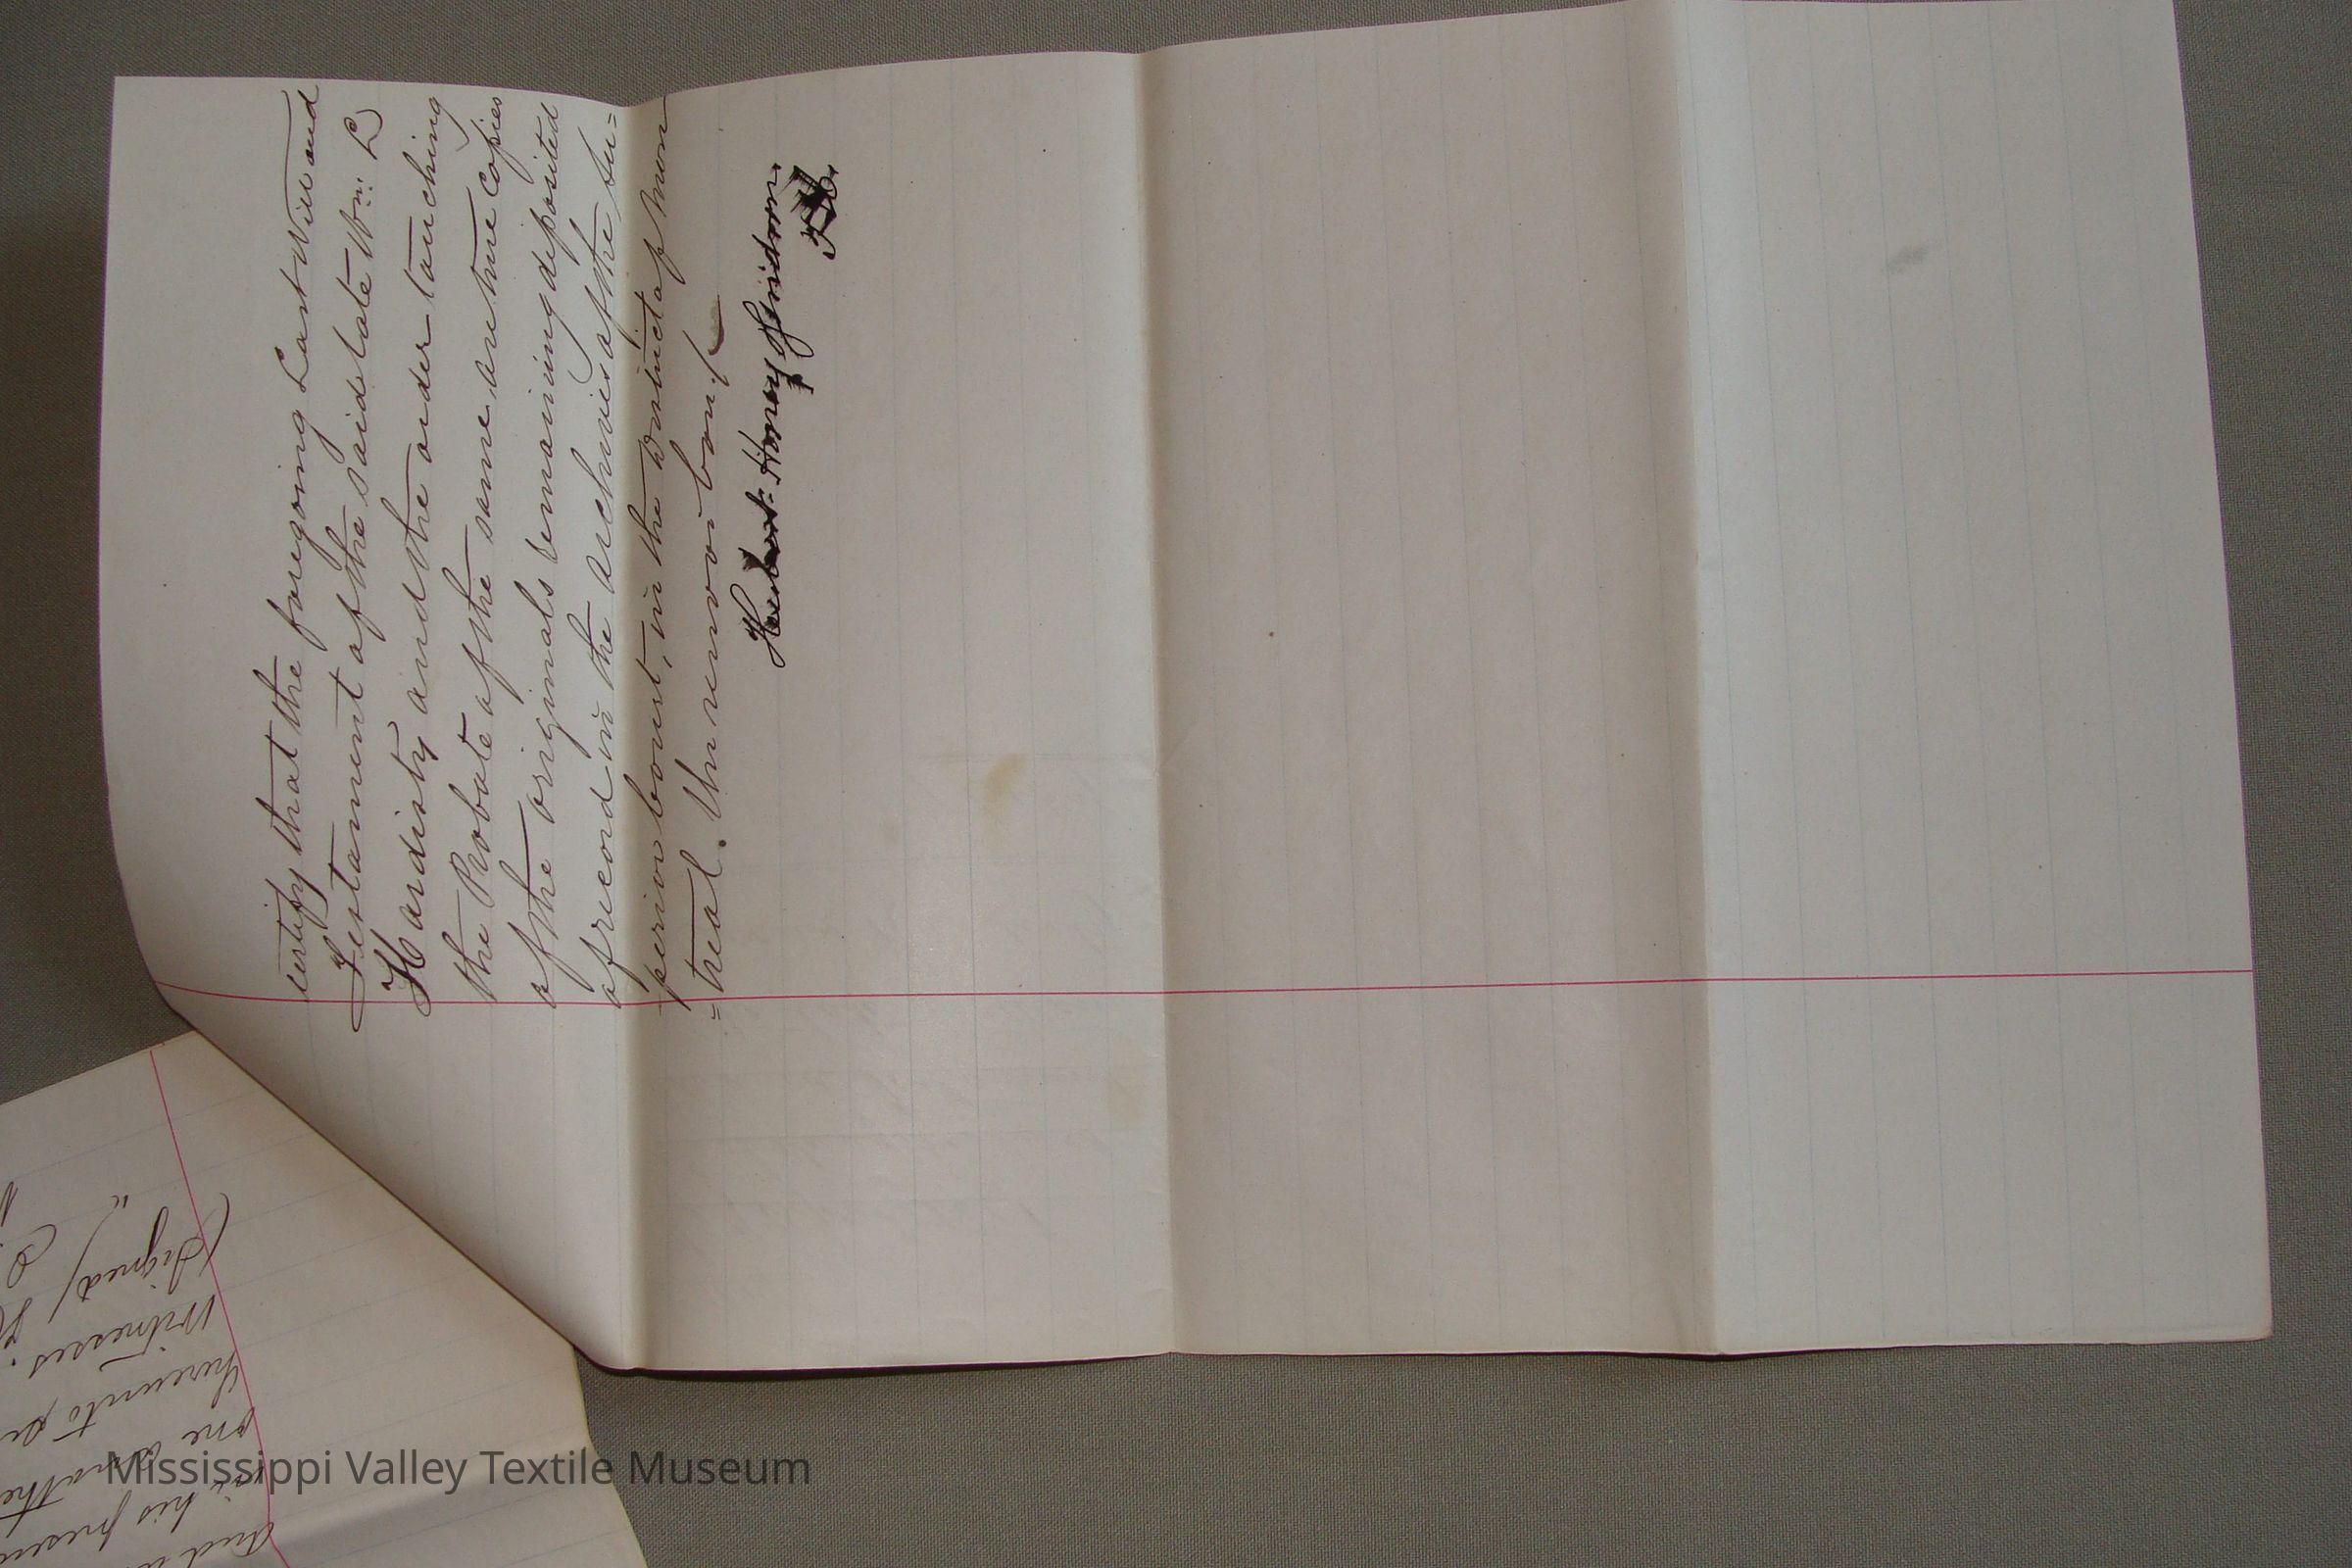 certify that the foregoing Last Will and
Testament of the said late Wm: L
Hardisty and the order touching
the Probate of the same are true copies
of the originals remaining deposited
of record in the archives of the Su=
perior Court, in the District of Mon
=treal. Un renvoi bon./
Honey Gendron.
(signed)
witnesses.
hereunto
one
his presen
and
Mississippi Valley Textile Museum